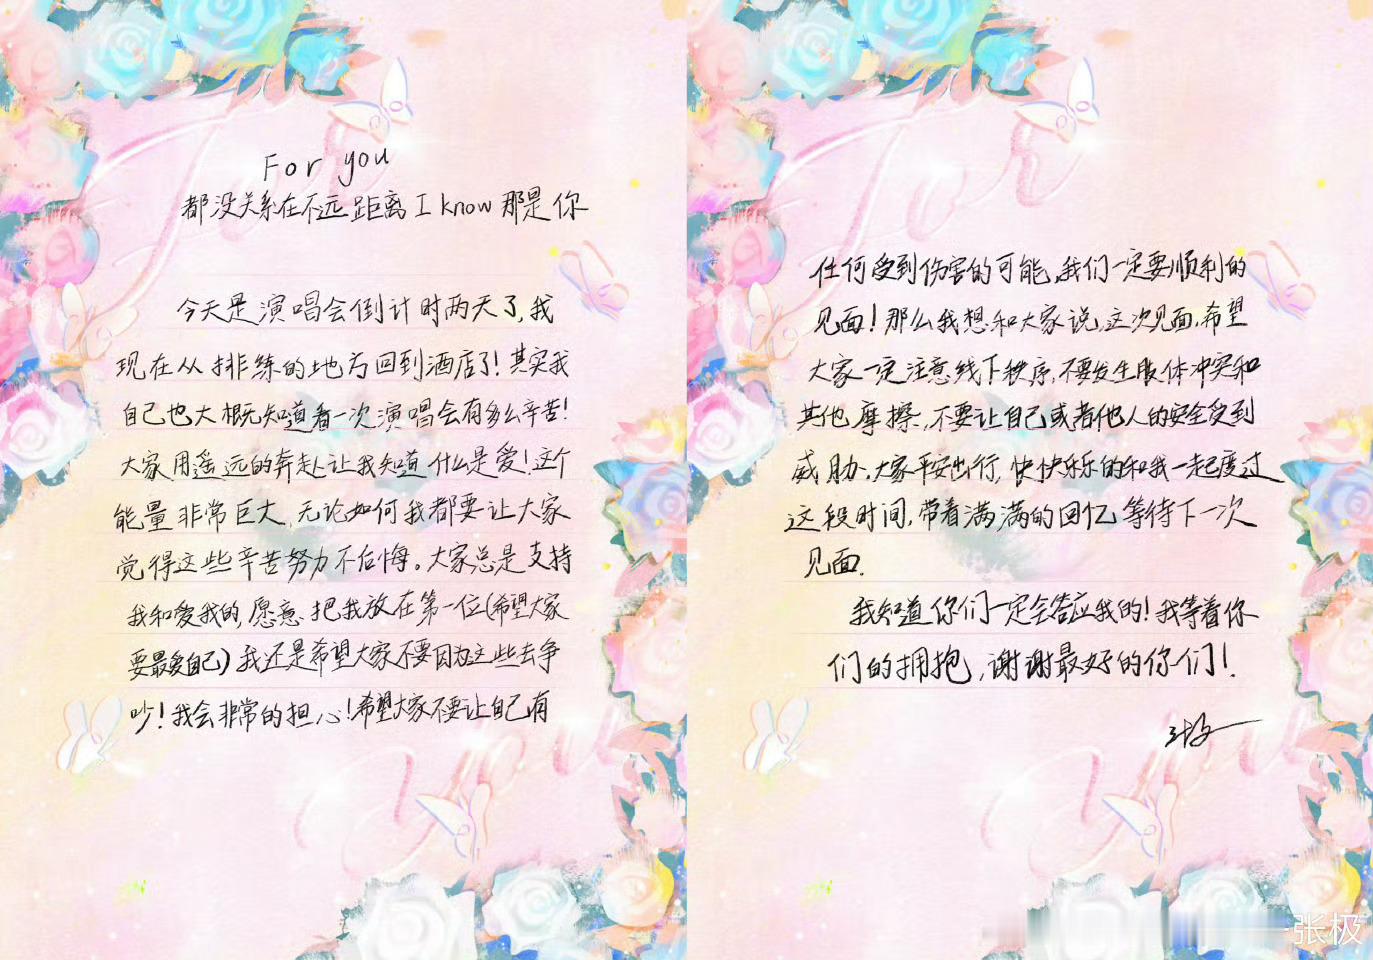 For you
都没关系在不远距离 I know 那是你
今天是演唱会倒计时两天了,我
现在从排练的地方回到酒店了!其实我
自己也大概知道看一次演唱会有多么辛苦!
大家用遥远的奔赴让我知道什么是爱!这个
能量非常巨大,无论如何我都要让大家
觉得这些辛苦努力不后悔。大家总是支持
我和爱我的,愿意把我放在第一位(希望大家
要最爱自己)我还是希望大家不要因为这些去争
吵!我会非常的担心!希望大家不要让自己有
任何受到伤害的可能,我们一定要顺利的
见面!那么我想和大家说,这次见面,希望
大家一定注意线下秩序,不要发生肢体冲突和
其他摩擦,不要让自己或者他人的安全受到
威胁,大家平安出行,快快乐乐的和我一起度过
这段时间,带着满满的回忆等待下一次
见面.
我知道你们一定会答应我的!我等着你
们的拥抱,谢谢最好的你们!
张极